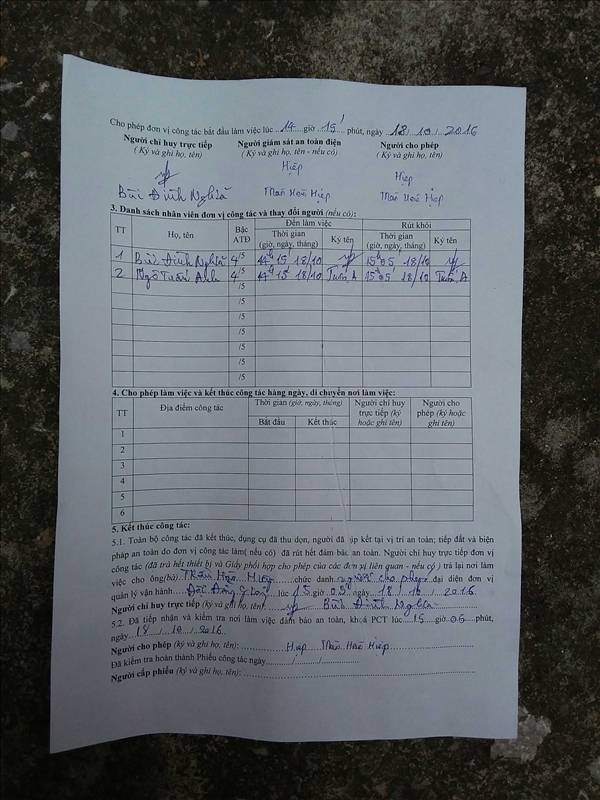 Cho phép đơn vị công tác bắt đầu làm việc lúc 14 giờ 15' phút, ngày 18 / 10 / 2016
Người chỉ huy trực tiếp Người giám sát an toàn điện Người cho phép
( Ký và ghi họ, tên) ( Ký và ghi họ, tên - nếu có) ( Ký và ghi họ, tên)
Hiệp Hiệp
Bùi Đình Nghĩa Thân Hoà Hiệp Thân Hoà Hiệp
3. Danh sách nhân viên đơn vị công tác và thay đổi người (nếu có):
TT Họ, tên Bậc ATĐ Đến làm việc Rút khỏi
Thời gian (giờ, ngày, tháng) Ký tên Thời gian (giờ, ngày, tháng) Ký tên
1 Bùi Đình Nghĩa 4/5 14h15 18/10 15h05' 18/10
2 Ngô Tuấn Anh 4/5 14h15 18/10 Tuấn A 15h05' 18/10 Tuấn A
/5
/5
/5
/5
/5
/5
4. Cho phép làm việc và kết thúc công tác hàng ngày, di chuyển nơi làm việc:
TT Địa điểm công tác Thời gian (giờ, ngày, tháng) Người chỉ huy trực tiếp (ký hoặc ghi tên) Người cho phép (ký hoặc ghi tên)
Bắt đầu Kết thúc
1
2
3
4
5
6
5. Kết thúc công tác:
5.1. Toàn bộ công tác đã kết thúc, dụng cụ đã thu dọn, người đã tập kết tại vị trí an toàn; tiếp đất và biện
pháp an toàn do đơn vị công tác làm( nếu có) đã rút hết đảm bảo an toàn. Người chỉ huy trực tiếp đơn vị
công tác (đã trả hết thiết bị và Giấy phối hợp cho phép của các đơn vị liên quan - nếu có ) trả lại nơi làm
việc cho ông(bà) Thân chức danh người cho phép đại diện đơn vị
quản lý vận hành lúc 15 giờ 05' ngày 18 / 10 / 2016
Người chỉ huy trực tiếp (ký và ghi họ, tên) Bùi Đình Nghĩa
5.2. Đã tiếp nhận và kiểm tra nơi làm việc đảm bảo an toàn, khoá PCT lúc 15 giờ 05 phút,
ngày 18 / 10 / 2016
Người cho phép (ký và ghi họ, tên): Hiệp Thân Hoà Hiệp
Đã kiểm tra hoàn thành Phiếu công tác ngày / /
Người cấp phiếu (ký và ghi họ, tên):